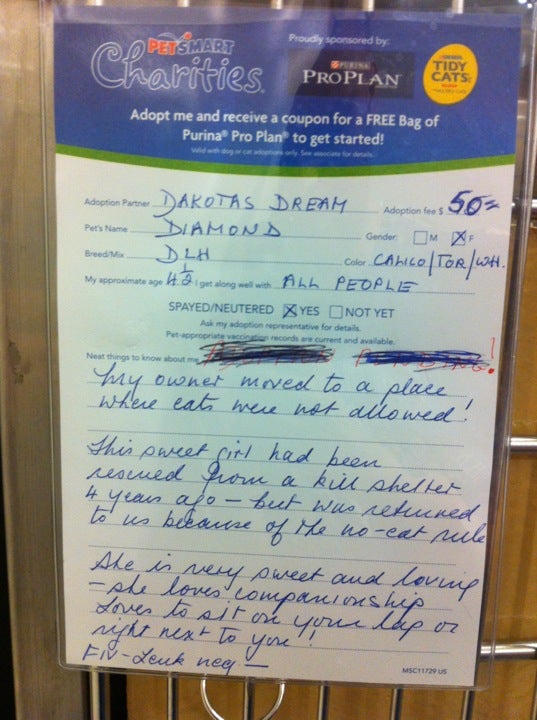 PETSMART
Charities®
Proudly sponsored by:
PURINA
PRO PLAN
PURINA
TIDY
CATS
Adopt me and receive a coupon for a FREE Bag of
Purina® Pro Plan® to get started!
Valid with dog or cat adoptions only. See associate for details.
Adoption Partner DAKOTAS DREAM Adoption fee $ 50=
Pet's Name DIAMOND Gender: M X F
Breed/Mix DLH Color CALICO/TOR/WH.
My approximate age 4½ I get along well with ALL PEOPLE
SPAYED/NEUTERED X YES NOT YET
Ask my adoption representative for details.
Pet-appropriate vaccination records are current and available.
Neat things to know about me PENDING!
My owner moved to a place
where cats were not allowed!
This sweet girl had been
rescued from a kill shelter
4 years ago – but was returned
to us because of the no-cat rule
She is very sweet and loving
– she loves companionship
Loves to sit on your lap or
right next to you!
FIV-Leuk neg –
MSC11729 US